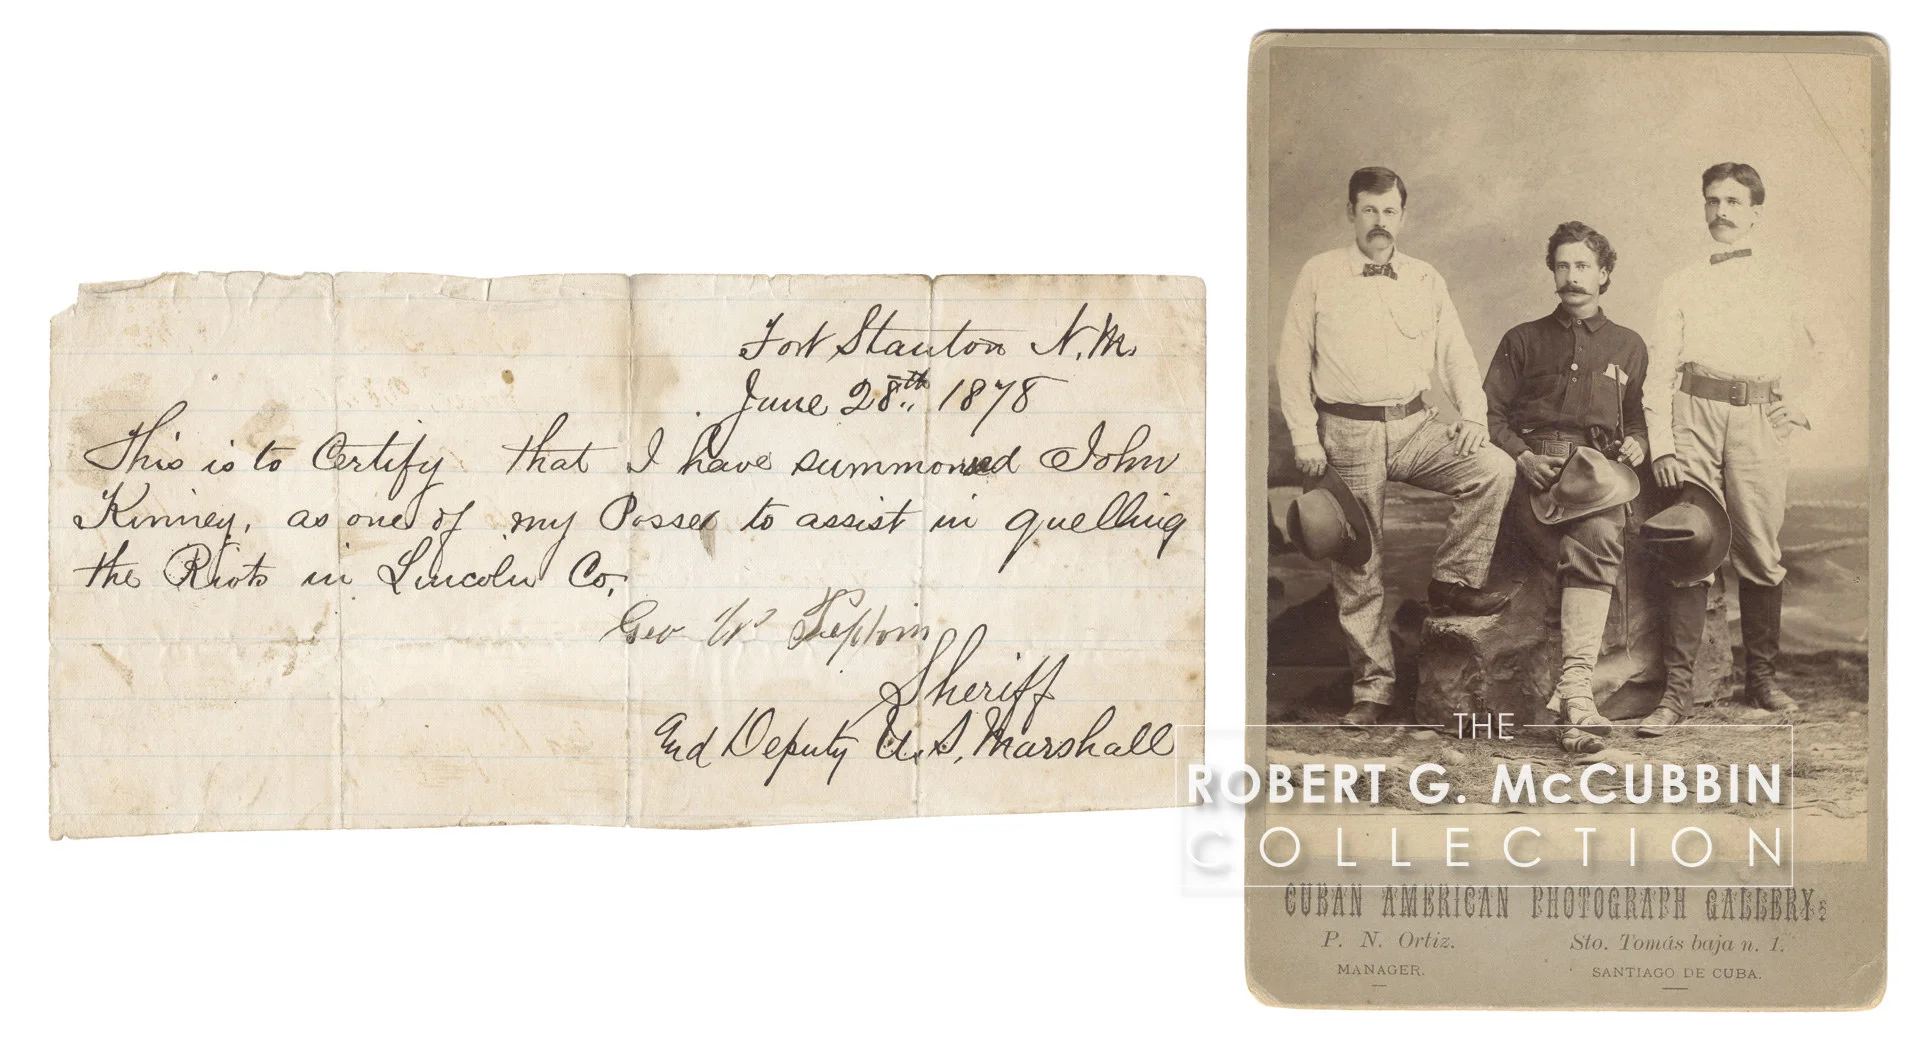 Fort Stanton N.M.
June 28th, 1878
This is to Certify that I have summoned John
Kinney, as one of my Posse to assist in quelling
the Riots in Lincoln Co,
Geo W Peppin
Sheriff
And Deputy U.S. Marshall
THE
ROBERT G. McCUBBIN
COLLECTION
CUBAN AMERICAN PHOTOGRAPH GALLERY
P. N. Ortiz.
MANAGER.
Sto. Tomás baja n. 1.
SANTIAGO DE CUBA.